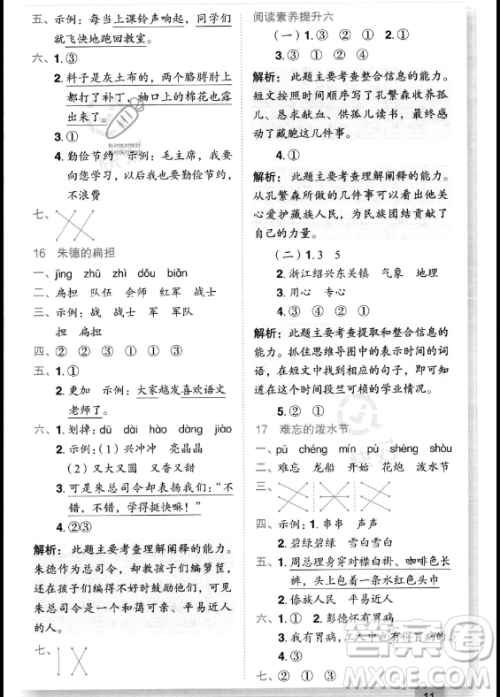 五、示例：每当上课铃声响起，同学们
就飞快地跑回教室。
六、1.③
2.料子是灰土布的，两个胳膊肘上
都打了补丁，袖口上的棉花也露
出来了。
3.①
4.勤俭节约 示例：毛主席，我
要向您学习，也要勤俭节约，
不浪费
七、
16 朱德的扁担
一、jìng zhū zhī dǒu biǎn
二、扁担 队伍 会师 红军 战士
三、示例：战 士 战士
担 扁担
四、② ③ ① ① ③
五、1.①
2.更加 示例：大家越发喜欢语文
老师了。
六、1.划掉：dū dā hàng dàng jiào
2.示例：(1)兴冲冲 亮晶晶
(2)又大又圆 又香又甜
3.可是朱总司令却表扬我们：“不
错，不错，学得挺快嘛！”
4.②③
解析：此题主要考查理解阐释的能力。
朱德作为总司令，和孩子们聊天，
还给孩子们做示范，教他们编箩筐，
还在孩子们学得不好时鼓励他们。
朱总司令非常亲和、平易近人的
人。
七、
阅读素养提升六
(一) 1.① 2.① ②
3.② ③ ④ ①
解析：此题主要考查整合信息的能力。
短文按时间顺序写了孔繁森收养孤
儿、卖血、供孤儿读书，最后感
动了藏胞这几件事。
4.①
解析：此题主要考查理解阐释的能力。
孔繁森所做的几件事可以看出他关
心爱护藏族人民，为民族团结做出了
贡献。
(二) 1.3 5
2.浙江绍兴东关镇 气象 地理
3.用心 专心
4.③ ④ ② ①
解析：此题主要考查提取和整合信息的
能力。抓住思维导图中的表示时间的词
语，在短文中找到相应的句子，就能
知道每个时间段竺可桢的学业情况。
5.①
17 难忘的泼水节
一、pū chéng mín pù shèng shòu
二、难忘 龙船 开始 花炮 泼水节
三、
四、示例：1.串串 声声
2.碧绿碧绿 雪白雪白
五、1.周总理身穿对襟白褂、咖啡色长
裤，头上包着一条水红色头巾
2.②
六、1.① 2.彭德怀有胃病
3.我有胃病，工人中也有胃病的。
七、② ④ ① ③
11
答案圈
MXQE.COM